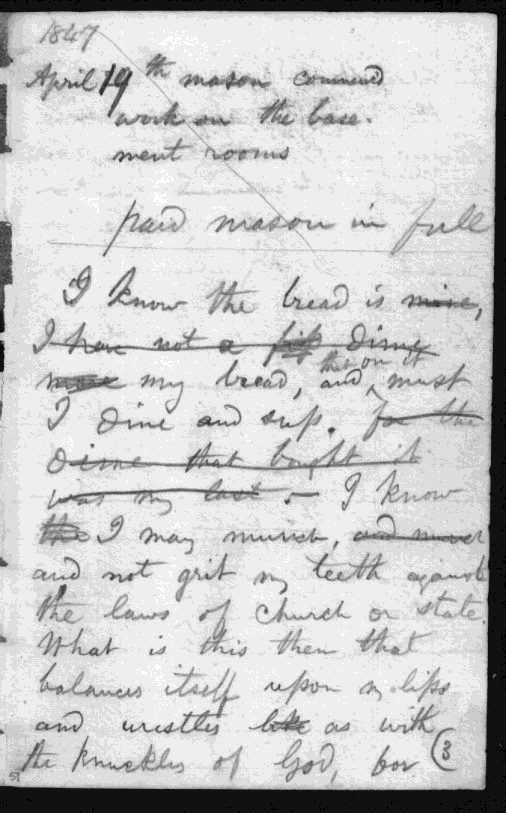 1847
April 19th mason commenced
work on the base-
ment rooms
paid mason in full
I know the bread is mine,
I have not a dime
more my bread, and that on it must
I dine and sup. for the
dime that bought it
was my last. — I know
the I may munch, and munch
and not grit my teeth against
the laws of church or state.
What is this then that
balances itself upon my lips
and wrestles like as with
the knuckles of God, for
(3